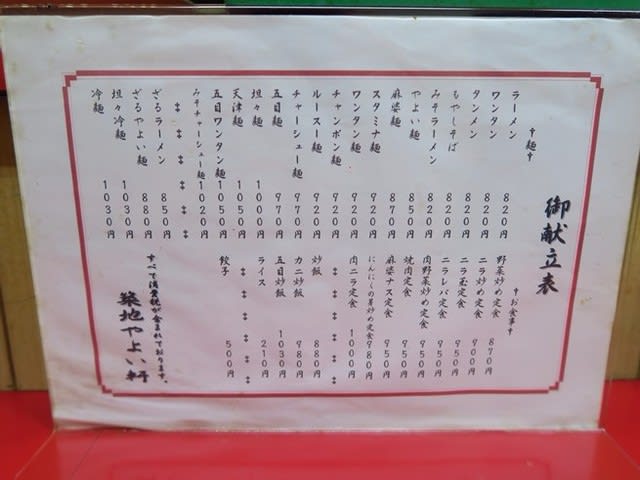 御献立表
麺
ラーメン 820円
ワンタン 820円
タンメン 820円
もやしそば 820円
みそラーメン 820円
やよい麺 850円
麻婆麺 870円
スタミナ麺 850円
ワンタン麺 920円
チャンポン麺 920円
ルースー麺 920円
チャーシュー麺 970円
五目麺 970円
坦々麺 1000円
天津麺 1050円
五目ワンタン麺 1050円
みそチャーシュー麺 1020円
ざるラーメン 850円
ざるやよい麺 880円
坦々冷麺 1030円
冷麺 1030円
お食事
野菜炒め定食 870円
ニラ炒め定食 900円
ニラ玉定食 950円
ニラレバ定食 950円
肉野菜炒め定食 950円
焼肉定食 950円
麻婆ナス定食 950円
にんにくの芽炒め定食 980円
肉ニラ定食 1000円
炒飯 880円
カニ炒飯 980円
五目炒飯 1030円
ライス 210円
餃子 500円
すべて消費税が含まれております。
築地やよい軒